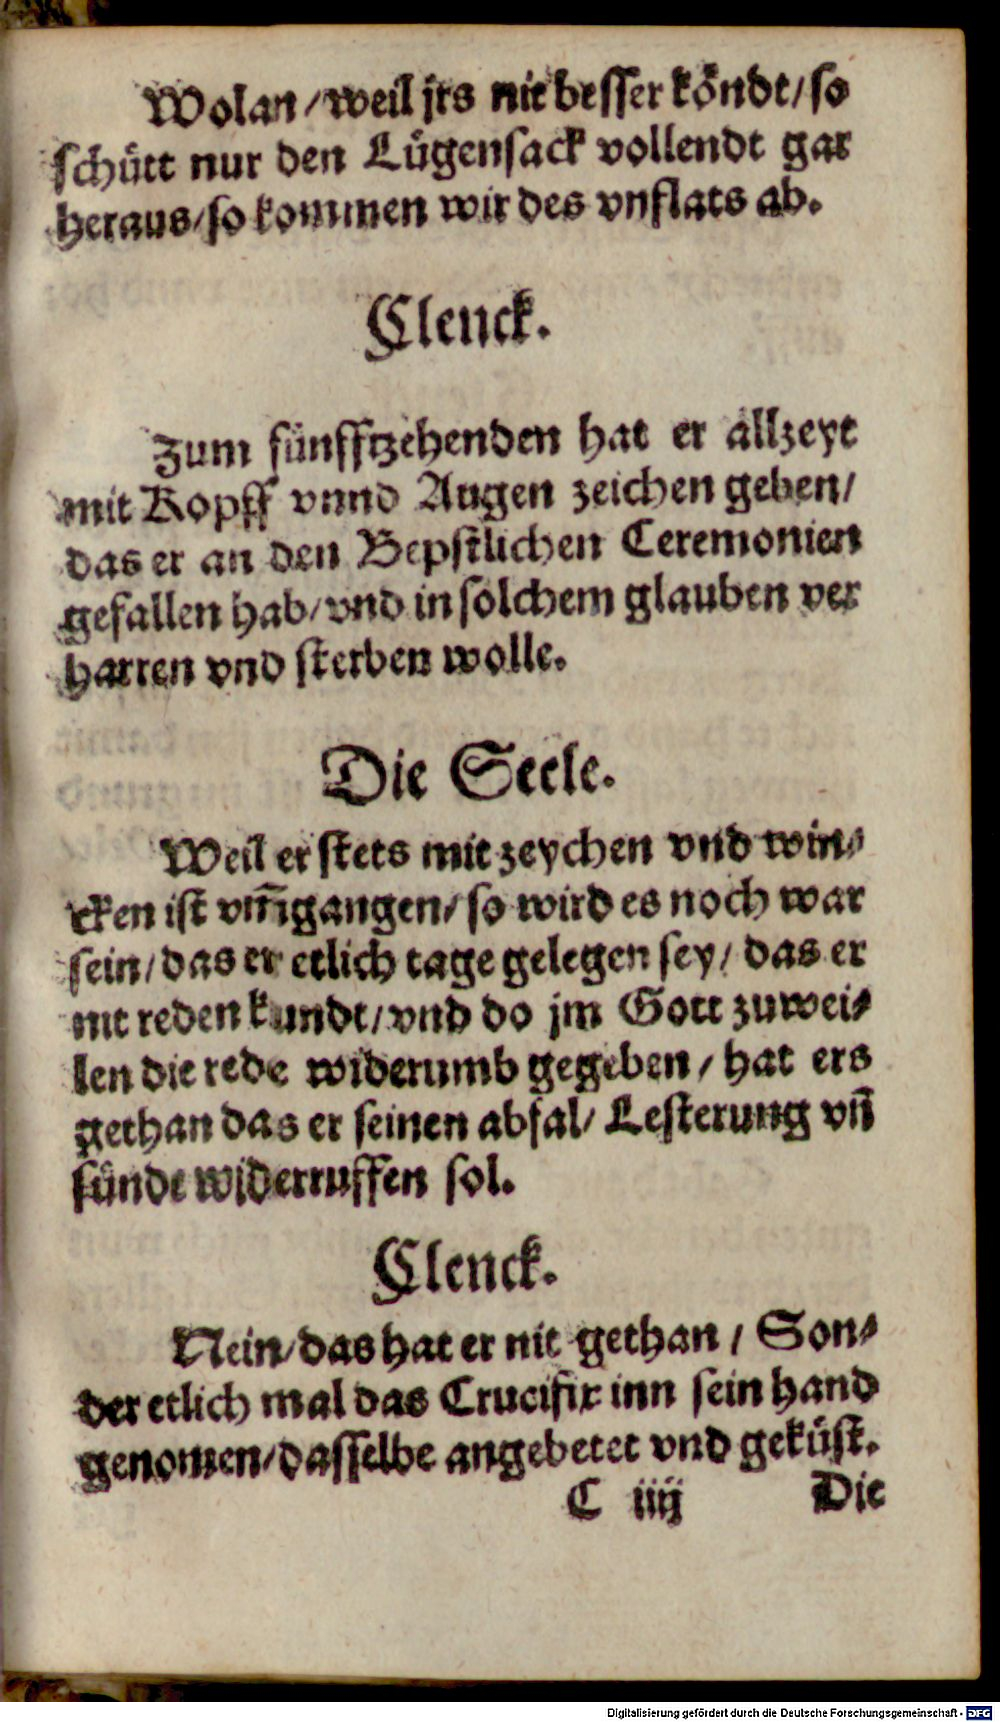 Wolan / weil jrs nit besser köndt / so
schütt nur den Lügensack vollendt gar
heraus / so kommen wir des vnflats ab.
Clenck.
Zum fünfftzehenden hat er allzeyt
mit Kopff vnnd Augen zeichen geben /
das er an den Bepstlichen Ceremonien
gefallen hab / vnd in solchem glauben ver
harren vnd sterben wolle.
Die Seele.
Weil er stets mit zeychen vnd win⸗
cken ist vm̃gangen / so wird es noch war
sein / das er etlich tage gelegen sey / das er
nit reden kundt / vnd do jm Gott zuwei⸗
len die rede widerumb gegeben / hat ers
gethan das er seinen abfal / Lesterung vñ
sünde widerruffen sol.
Clenck.
Nein / das hat er nit gethan / Son⸗
der etlich mal das Crucifix inn sein hand
genomen / dasselbe angebetet vnd geküst.
C iiij Die
Digitalisierung gefördert durch die Deutsche Forschungsgemeinschaft - DFG